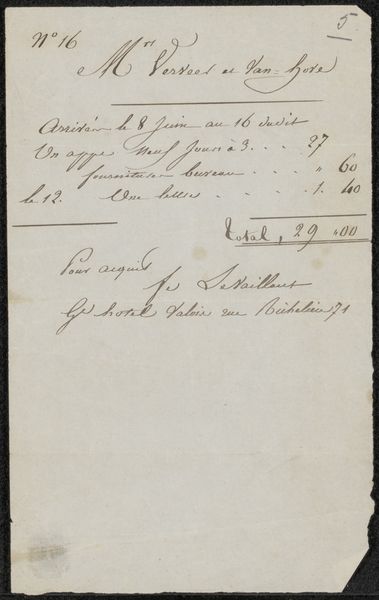 5
N° 16
Mrs Verveer et Van-Hove
Arrivés le 8 Juin au 16 dudit
Un appt Neuf Jours à 3 . . . 27
fourniture bureau . . . " 60
le 12. Une lettre . . . 1. 40
Total, 29 "00
Pour acquit
fe Levaillant
Gd hotel Valois rue Richelieu 71